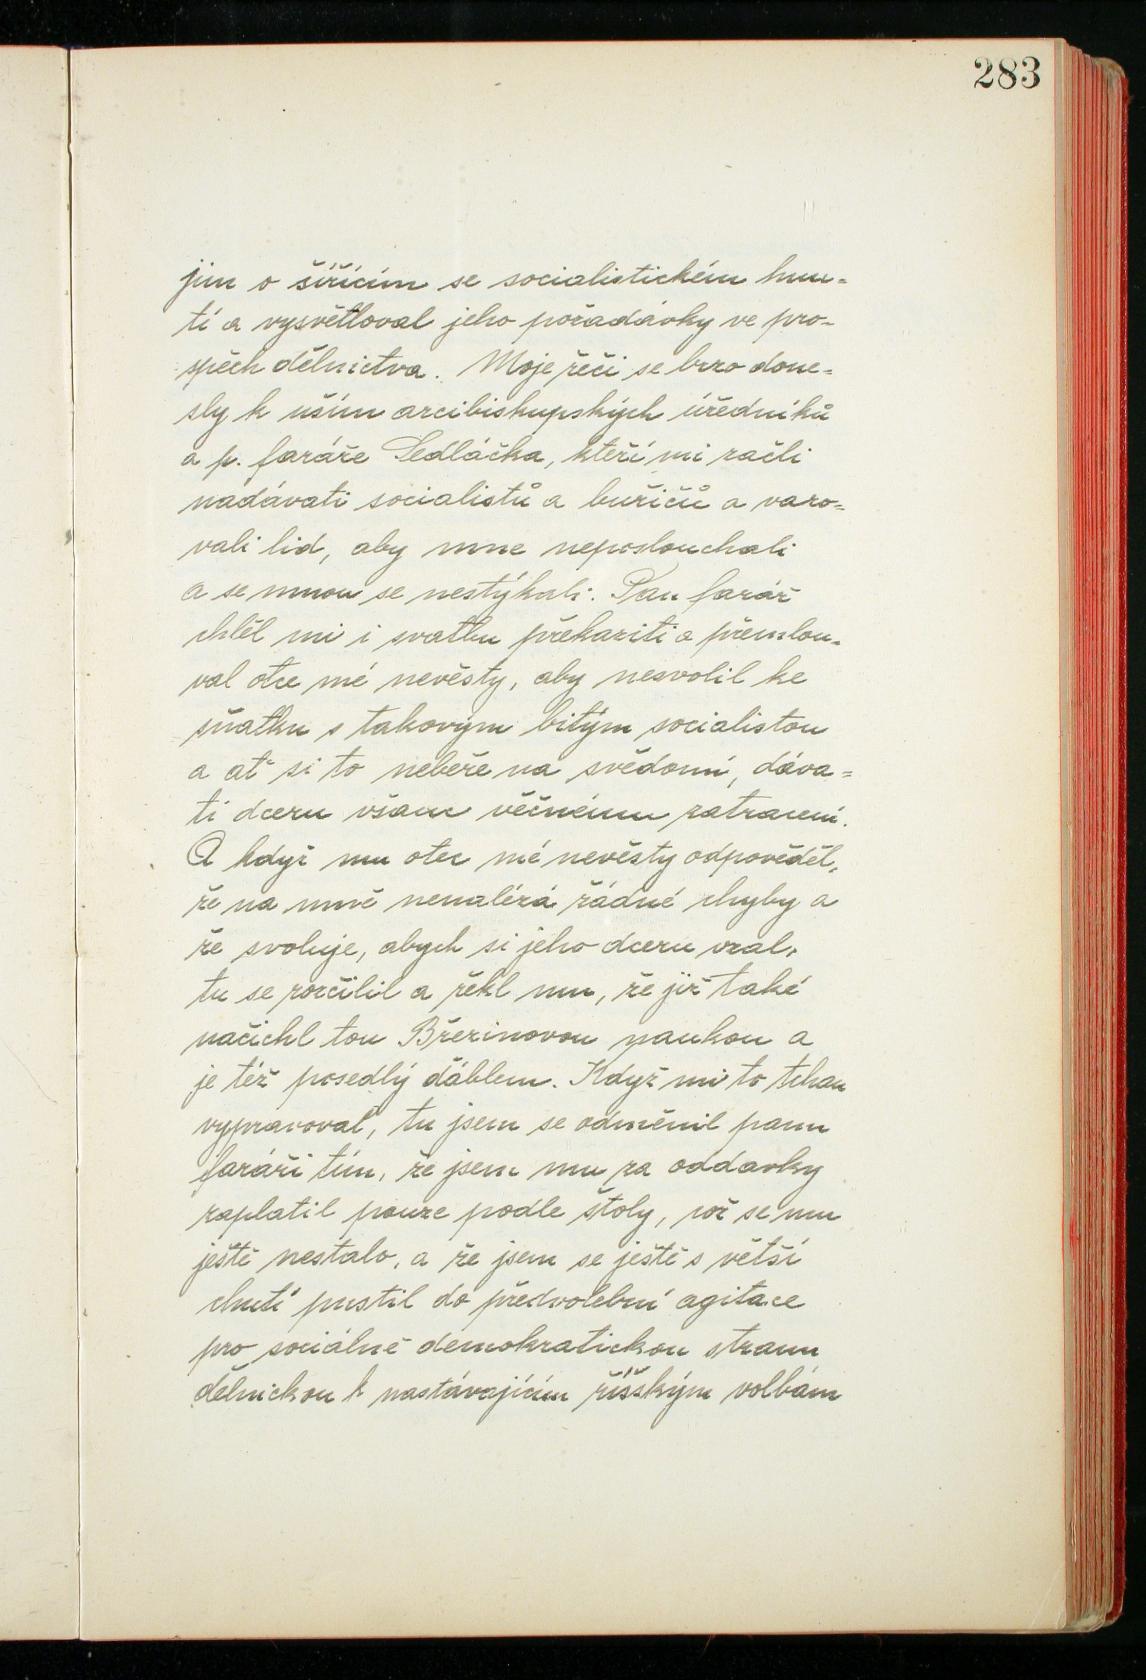 283
jim o šířícím se socialistickém hnu-
tí a vysvětloval jeho požadavky ve pro-
spěch dělnictva. Moje řeči se brzo done-
sly k uším arcibiskupských úředníků
a p. faráře Sedláčka, kteří mi ráčili
nadávati socialistů a buřičů a varo-
vali lid, aby mne neposlouchali
a se mnou se nestýkali. Pan farář
chtěl mi i svatbu překaziti a přemlou-
val otce mé nevěsty, aby nesvolil ke
sňatku s takovým bitým socialistou
a ať si to nebeře na svědomí, dáva-
ti dceru všanc věčnému zatracení.
A když mu otec mé nevěsty odpověděl,
že na mně nenalézá žádné chyby a
že svoluje, abych si jeho dceru vzal,
tu se rozčílil a řekl mu, že již také
načichl tou Březinovou naukou a
je též posedlý ďáblem. Když mi to tchan
vypravoval, tu jsem se odměnil panu
faráři tím, že jsem mu za oddavky
zaplatil pouze podle štoly, což se mu
ještě nestalo, a že jsem se ještě s větší
chutí pustil do předvolební agitace
pro sociálně demokratickou stranu
dělnickou k nastávajícím říšským volbám